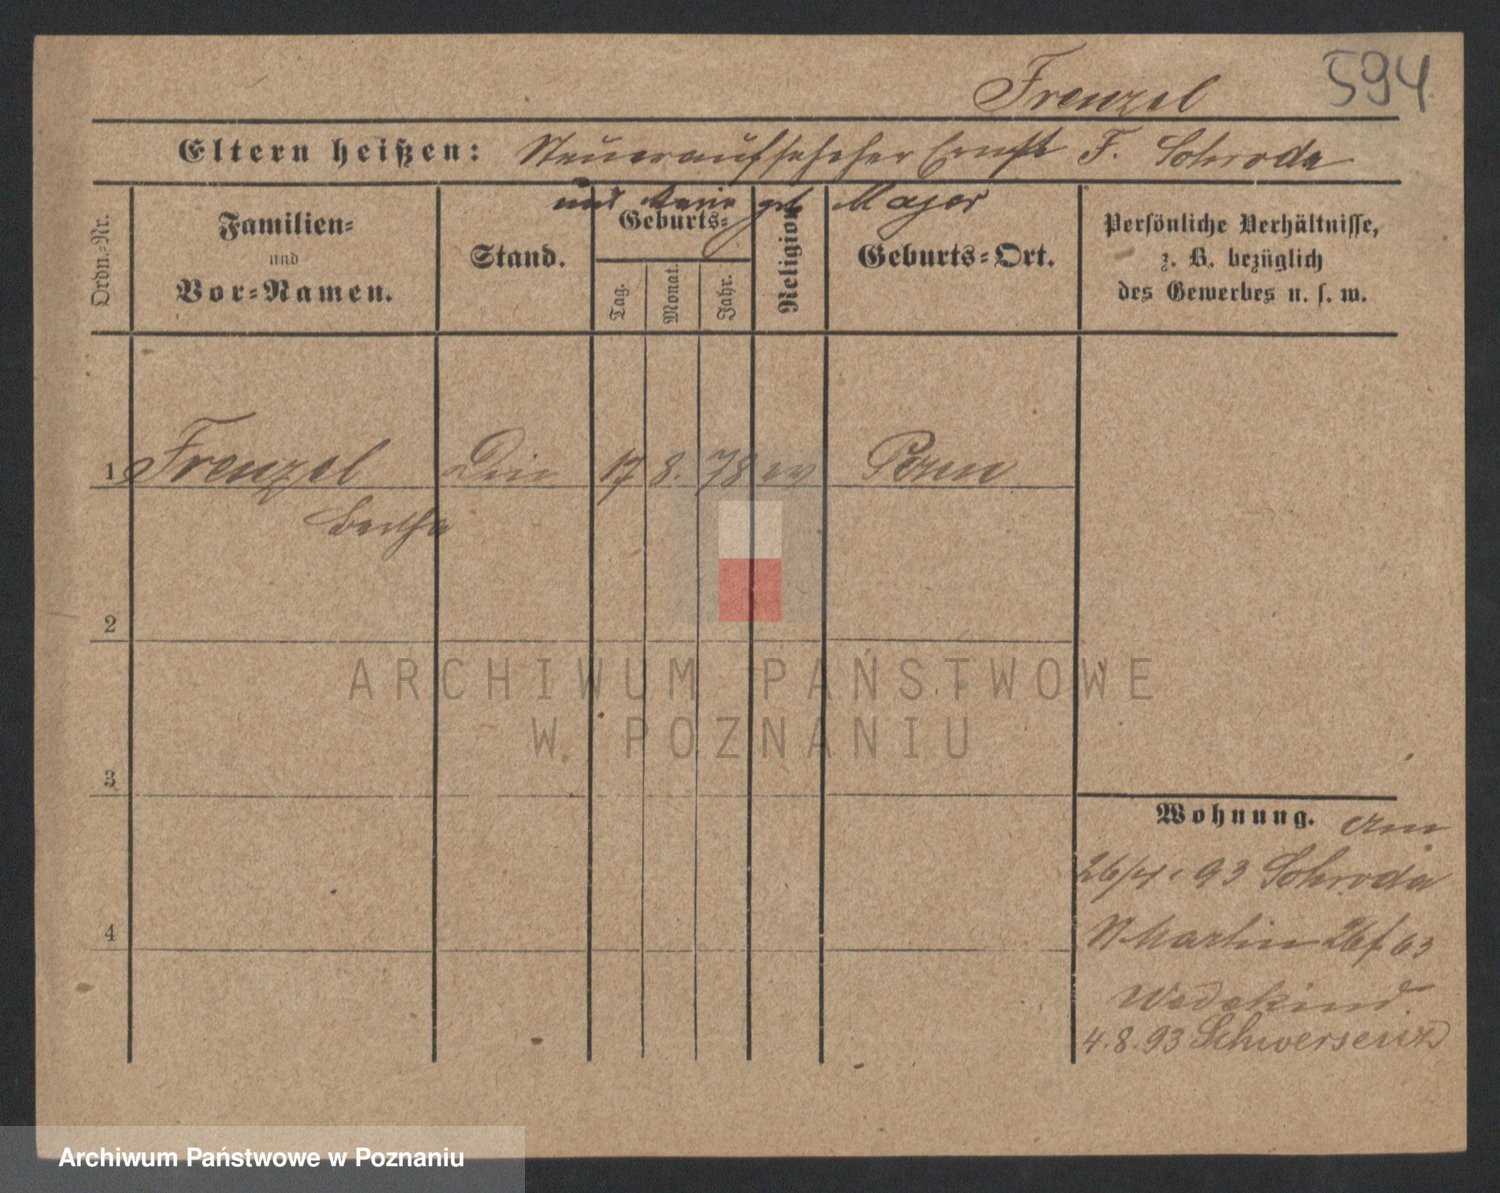 Frenzel 594
Eltern heißen: Steueraufseher Ernst F. Schroda
und Marie geb Major
Ordn.-Nr.
Familien-
und
Vor-Namen.
Stand.
Geburts-
Tag.
Monat.
Jahr.
Religion
Geburts-Ort.
Persönliche Verhältnisse,
z. B. bezüglich
des Gewerbes u. s. w.
1 Frenzel 17 8. 78 ev Posen
Bertha
2
3
4
Wohnung. am
26/4. 93 Schroda
Martin 26
Wedekind
4.8.93 Schwersenz
ARCHIWUM PAŃSTWOWE
W POZNANIU
Archiwum Państwowe w Poznaniu